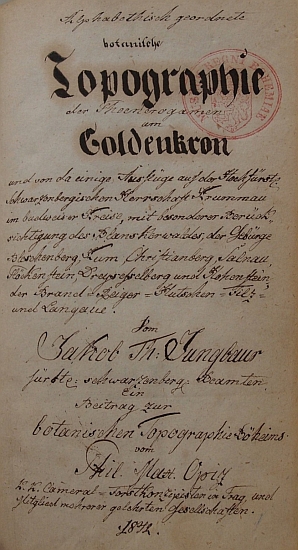 Alphabethisch geordnete
botanische
Topographie
der Phoenerogamen
um
Goldenkron
und von da einige Ausflüge auf der Hochfürstl:
schwarzenbergischen Herrschaft Krummau
im budweiser Kreise, mit besonderer Berück-
sichtigung des Blanskerwaldes, der Gebürge
Blöschenberg, Kum, Christianberg, Salnau,
Plöckenstein, Dreysesselberg und Hohenstein
der Brand- Geiger- Hutschen- Filz-
und Langaue.
Vom
Jakob Th. Jungbaur
fürstl: schwarzenberg: Beamten.
Ein
Beitrag zur
botanischen Topographie Böheims
vom
Phil. Max. Opiz
K. K. Cameral- Forstkonzipisten in Prag, und
Mitglied mehrerer gelehrten Gesellschaften.
1842.